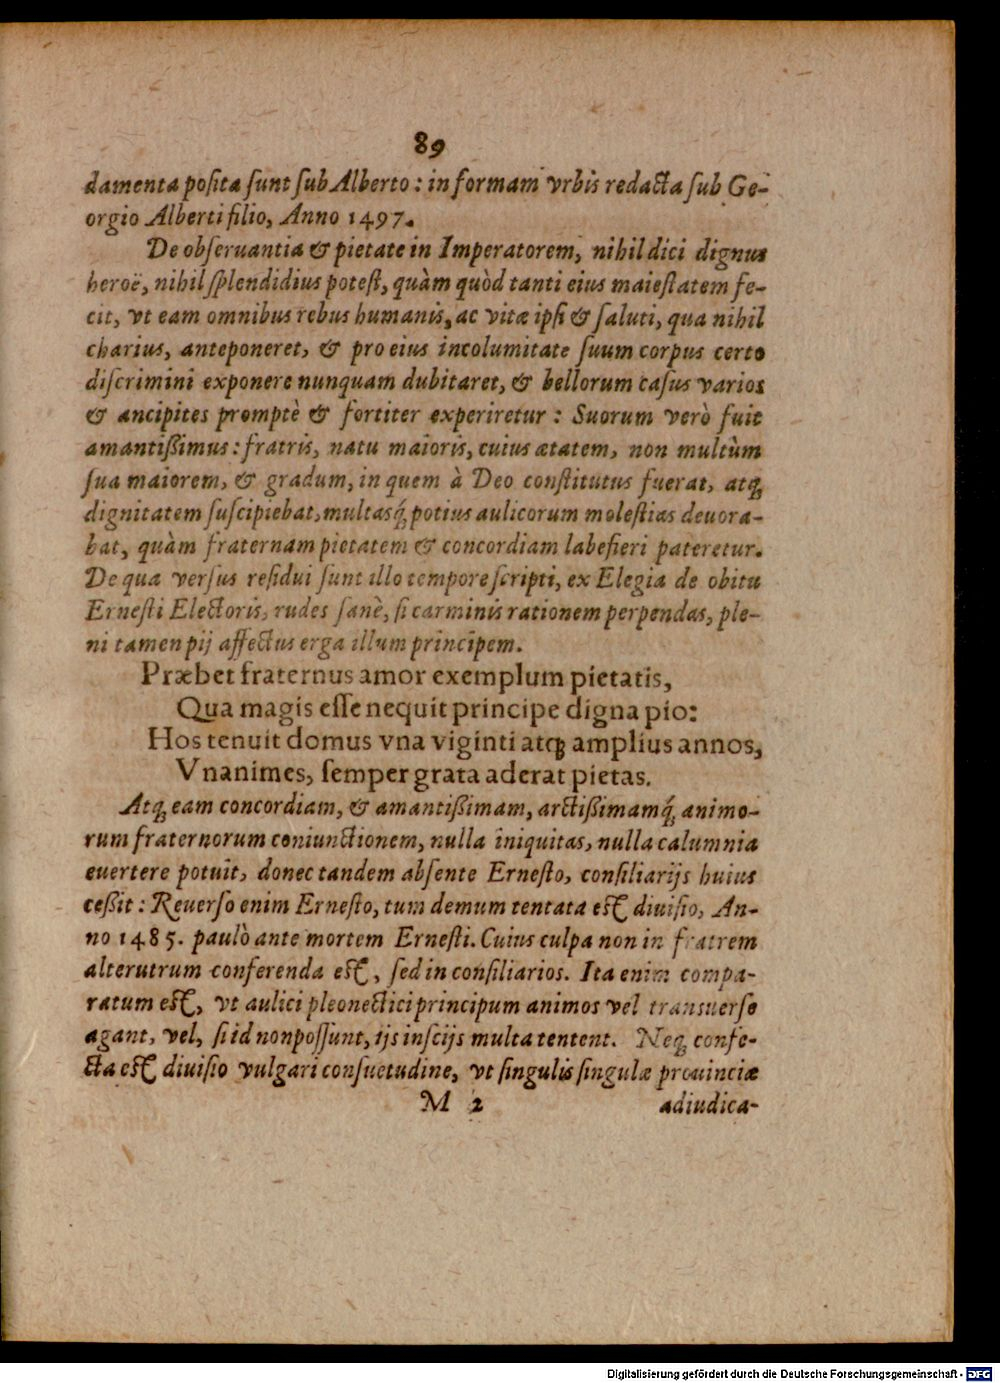 89
damenta posita sunt sub Alberto: in formam vrbis redacta sub Ge-
orgio Alberti filio, Anno 1497.
De obseruantia & pietate in Imperatorem, nihil dici dignus
heroë, nihil splendidius potest, quàm quòd tanti eius maiestatem fe-
cit, vt eam omnibus rebus humanis, ac vitæ ipsi & saluti, qua nihil
charius, anteponeret, & pro eius incolumitate suum corpus certo
discrimini exponere nunquam dubitaret, & bellorum casus varios
& ancipites promptè & fortiter experiretur: Suorum verò fuit
amantißimus: fratris, natu maioris, cuius ætatem, non multùm
sua maiorem, & gradum, in quem à Deo constitutus fuerat, atq́;
dignitatem suscipiebat, multasq́; potius aulicorum molestias deuora-
bat, quàm fraternam pietatem & concordiam labefieri pateretur.
De qua versus residui sunt illo tempore scripti, ex Elegia de obitu
Ernesti Electoris, rudes sanè, si carminis rationem perpendas, ple-
ni tamen pij affectus erga illum principem.
Præbet fraternus amor exemplum pietatis,
Qua magis esse nequit principe digna pio:
Hos tenuit domus vna viginti atq; amplius annos,
Vnanimes, semper grata aderat pietas.
Atq; eam concordiam, & amantißimam, arctißimamq́; animo-
rum fraternorum coniunctionem, nulla iniquitas, nulla calumnia
euertere potuit, donec tandem absente Ernesto, consiliarijs huius
ceßit: Reuerso enim Ernesto, tum demum tentata est diuisio, An-
no 1485. paulò ante mortem Ernesti. Cuius culpa non in fratrem
alterutrum conferenda est, sed in consiliarios. Ita enim compa-
ratum est, vt aulici pleonectici principum animos vel transuerse
agant, vel, si id non possunt, ijs inscijs multa tentent. Neq; confe-
cta est diuisio vulgari consuetudine, vt singulis singulæ prouinciæ
M 2 adiudica-
Digitalisierung gefördert durch die Deutsche Forschungsgemeinschaft - DFG